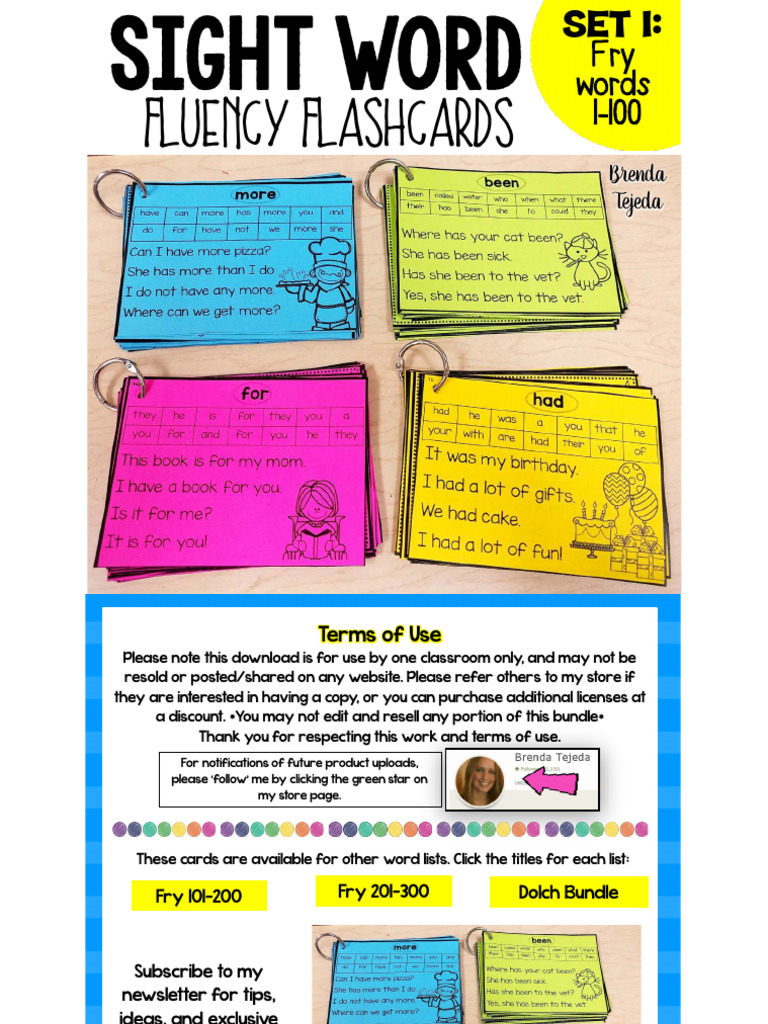 SIGHT WORD
FLUENCY FLASHCARDS
SET 1:
Fry
words
1-100
Brenda
Tejeda
more
have can more has more you and
do for have not we more she
Can I have more pizza?
She has more than I do
I do not have any more.
Where can we get more?
been
been called water who when what there
their has been she to could they
Where has your cat been?
She has been sick.
Has she been to the vet?
Yes, she has been to the vet.
for
they he is for they you a
you for and for you he they
This book is for my mom.
I have a book for you.
Is it for me?
It is for you!
had
had he was a you that he
your with are had their you of
It was my birthday.
I had a lot of gifts.
We had cake.
I had a lot of fun!
Terms of Use
Please note this download is for use by one classroom only, and may not be
resold or posted/shared on any website. Please refer others to my store if
they are interested in having a copy, or you can purchase additional licenses at
a discount. •You may not edit and resell any portion of this bundle•
Thank you for respecting this work and terms of use.
For notifications of future product uploads,
please 'follow' me by clicking the green star on
my store page.
Brenda Tejeda
These cards are available for other word lists. Click the titles for each list:
Fry 101-200
Fry 201-300
Dolch Bundle
Subscribe to my
newsletter for tips,
ideas, and exclusive
more
have can more has more you and
do for have not we more she
Can I have more pizza?
She has more than I do
I do not have any more.
Where can we get more?
been
been called water who when what there
their has been she to could they
Where has your cat been?
She has been sick.
Has she been to the vet?
Yes, she has been to the vet